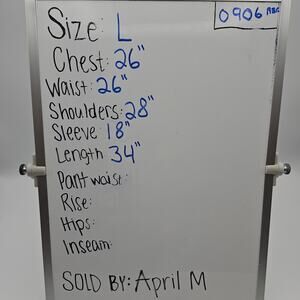 0906
Size: L
Chest: 26"
Waist: 26"
Shoulders: 28"
Sleeve: 18"
Length: 34"
Pant waist:
Rise:
Hips:
Inseam:
SOLD BY: April M